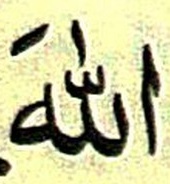 اللَّهَ